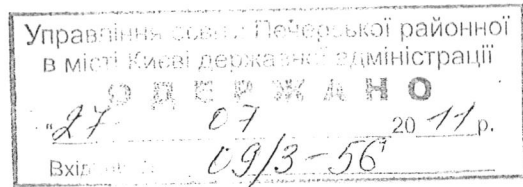 Управління освіти Печерської районної
в місті Києві державної адміністрації
ОДЕРЖАНО
"27" 07 2011 р.
Вхідний № 09/3-56